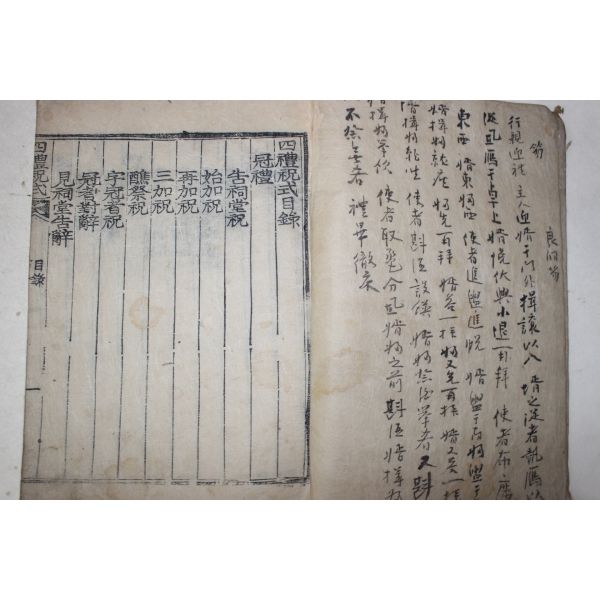 笏
行親迎禮 主人迎婿于門外揖讓以入 婿之從者執鴈以
從 置鴈于卓上 婿俛伏興小退再拜 使者布席
東西 婿東婦西 使者進盥進帨 婿盥于南婦盥于
婿揖婦就座 婦先再拜 婿答一拜 婦又先再拜 婿又答一拜
婿揖婦就坐 使者斟酒設饌 婿婦祭酒擧肴 又斟
婿揖婦擧飮 使者取巹分置婿婦之前 斟酒 婿揖婦
不祭無肴 禮畢撤案
四禮祝式目錄
冠禮
告祠堂祝
始加祝
再加祝
三加祝
醮祭祝
字冠者祝
冠者對辭
見祠堂告辭
四禮祝式 目錄 一